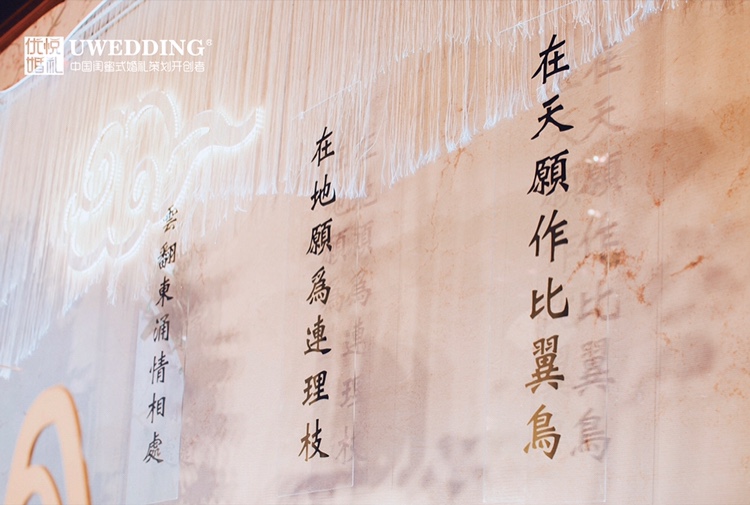 优悦
婚礼
UWEDDING®
中国闺蜜式婚礼策划开创者
在天願作比翼鳥
在地願爲連理枝
雲翻東涌情相處